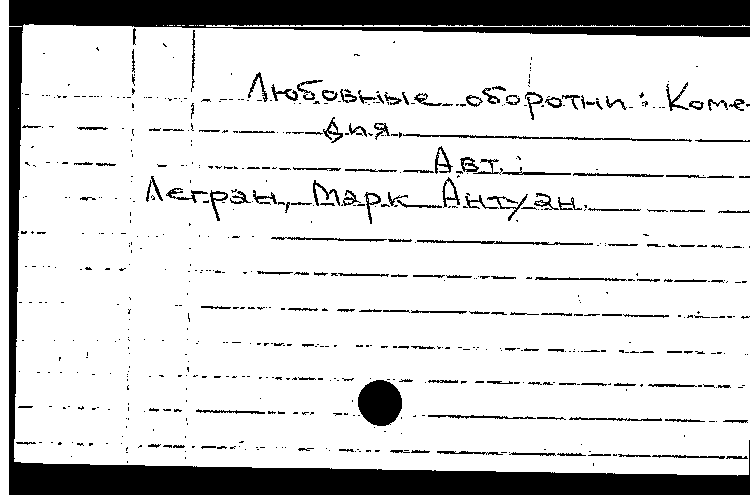 Любовные оборотни: Коме-
дия.
Авт.:
Легран, Марк Антуан.